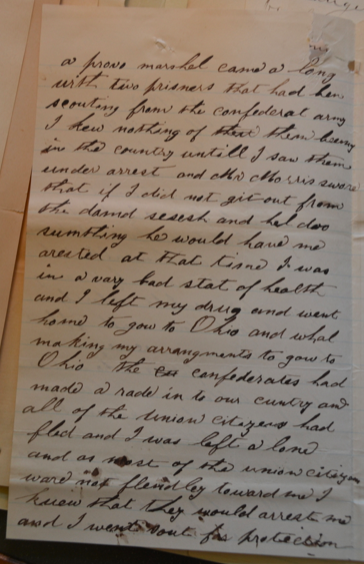 a provo marshel came a long
with two prisners that had ben
scouting from the confederal army
I knew nothing of their them being
in the country untill I saw them
under arrest and Mr Morris sware
that if I did not git out from
the damd sesesh and hel doo
sumthing he would have me
arested at that time I was
in a vary bad stat of health
and I left my drug and went
home to gow to Ohio and whal
making my arrangments to gow to
Ohio the confederates had
made a rade in to our cuntry and
all of the union citizens had
fled and I was left a lone
and as most of the union citizens
ware not flendley toward me I
knew that they would arrest me
and I went out for protection